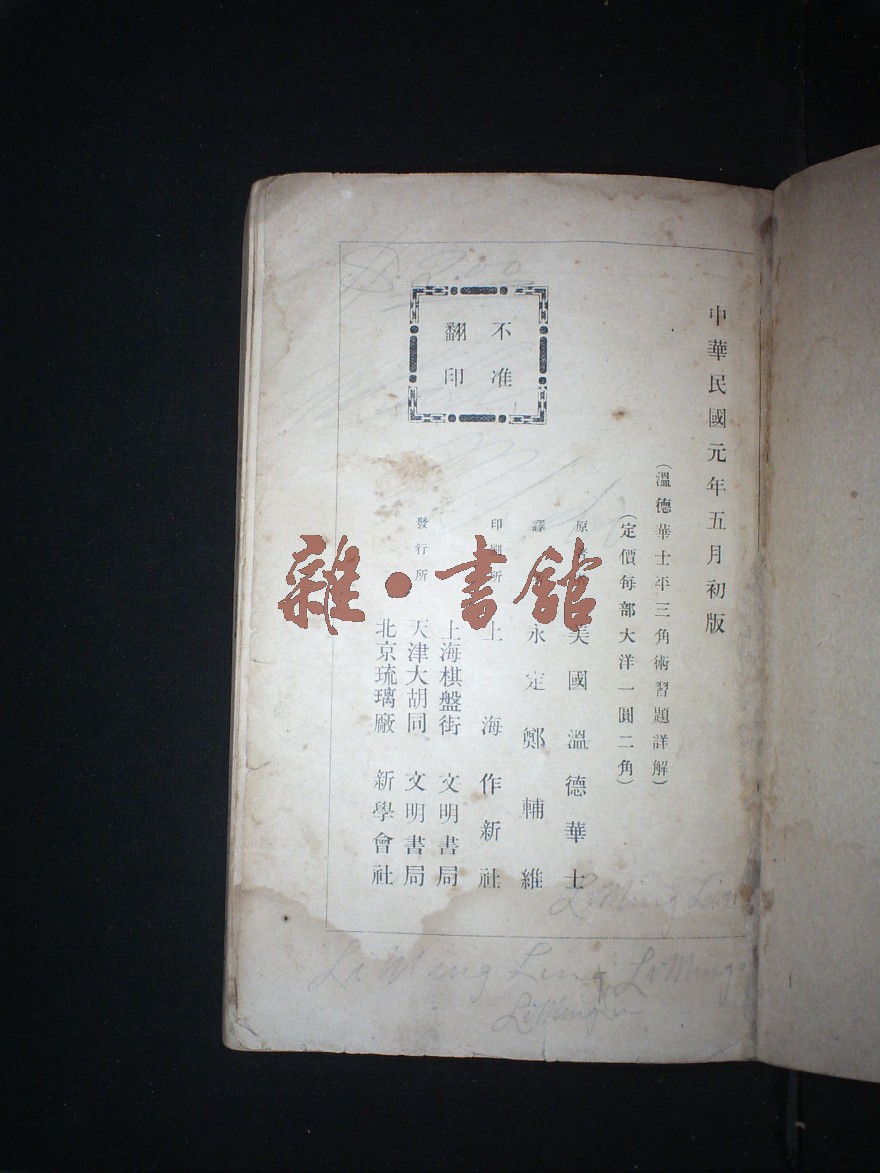 中華民國元年五月初版
(溫德華士平三角術習題詳解)
(定價每部大洋一圓二角)
原著者 美國溫德華士
譯 永定鄭輔維
印刷所 上海作新社
發行所
上海棋盤街 文明書局
天津大胡同 文明書局
北京琉璃廠 新學會社
不准
翻印
雜·書館
Li Ming Ling
Li Ming Ling Li Ming
Li Ming